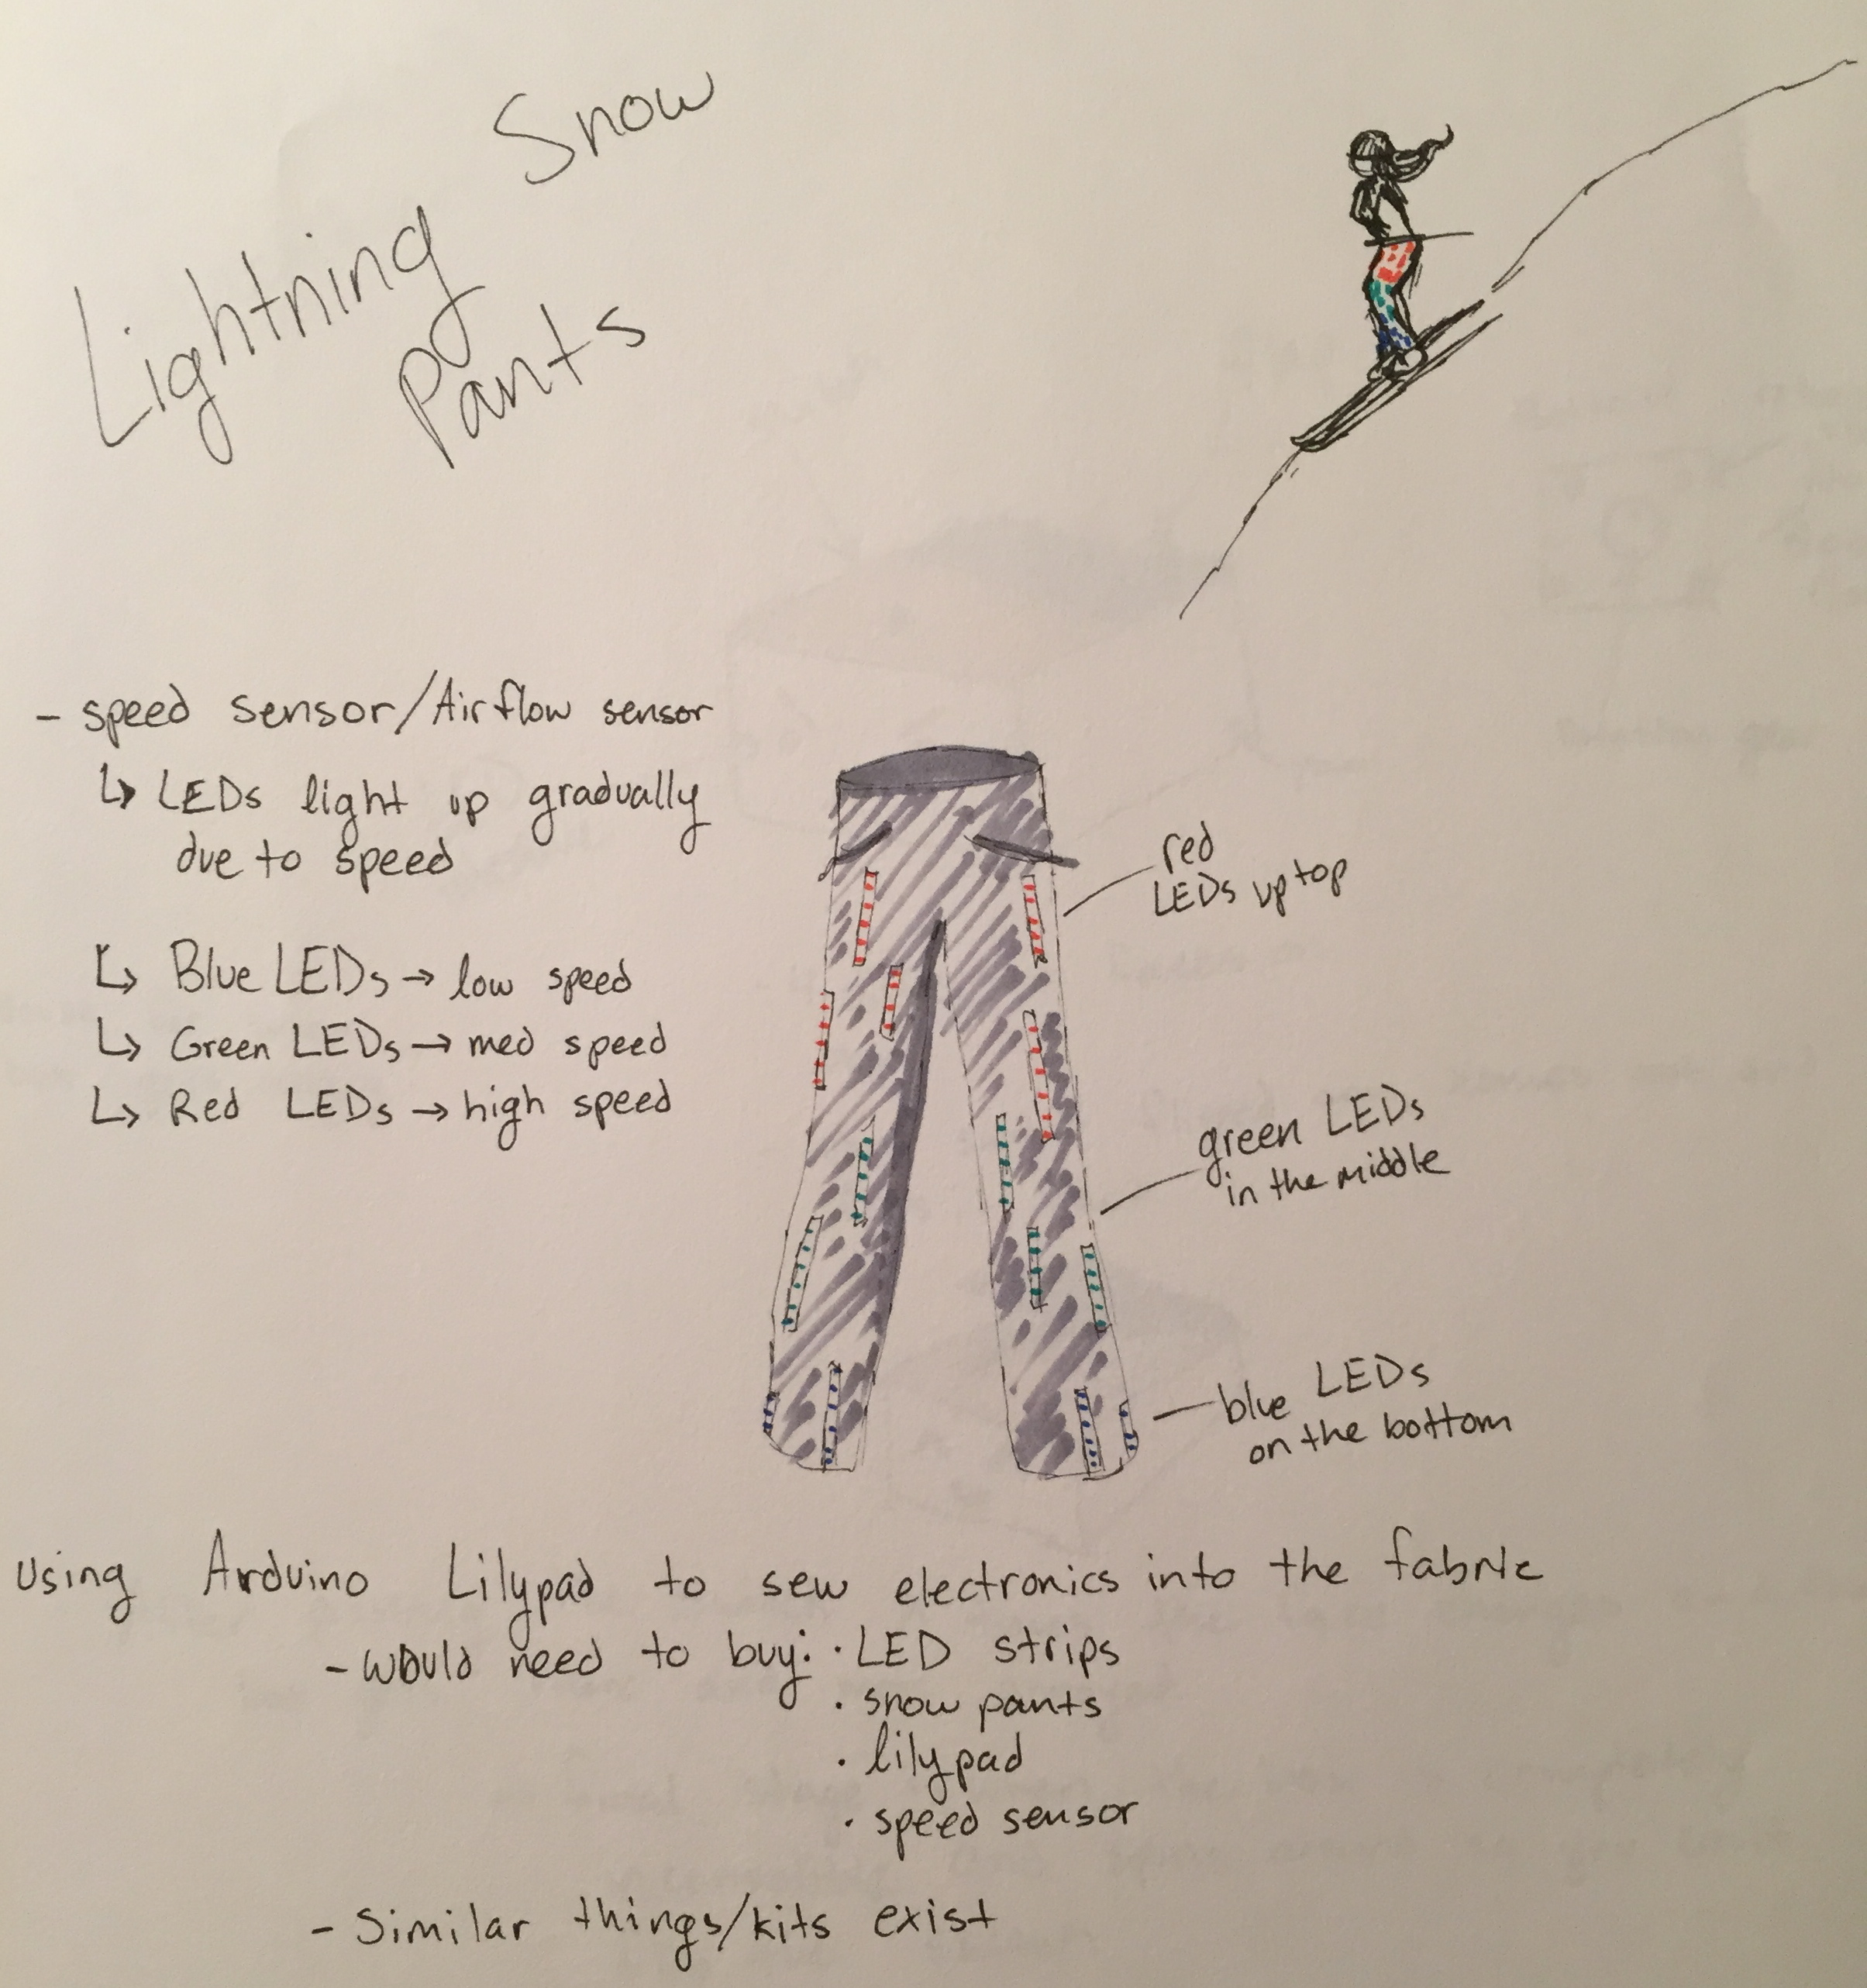 Lightning Snow
Pants
- speed sensor/Airflow sensor
↳ LEDs light up gradually
due to speed
↳ Blue LEDs → low speed
↳ Green LEDs → med speed
↳ Red LEDs → high speed
red
LEDs up top
green LEDs
in the middle
blue LEDs
on the bottom
Using Arduino Lilypad to sew electronics into the fabric
- would need to buy: · LED strips
· snow pants
· lilypad
· speed sensor
- Similar things/kits exist